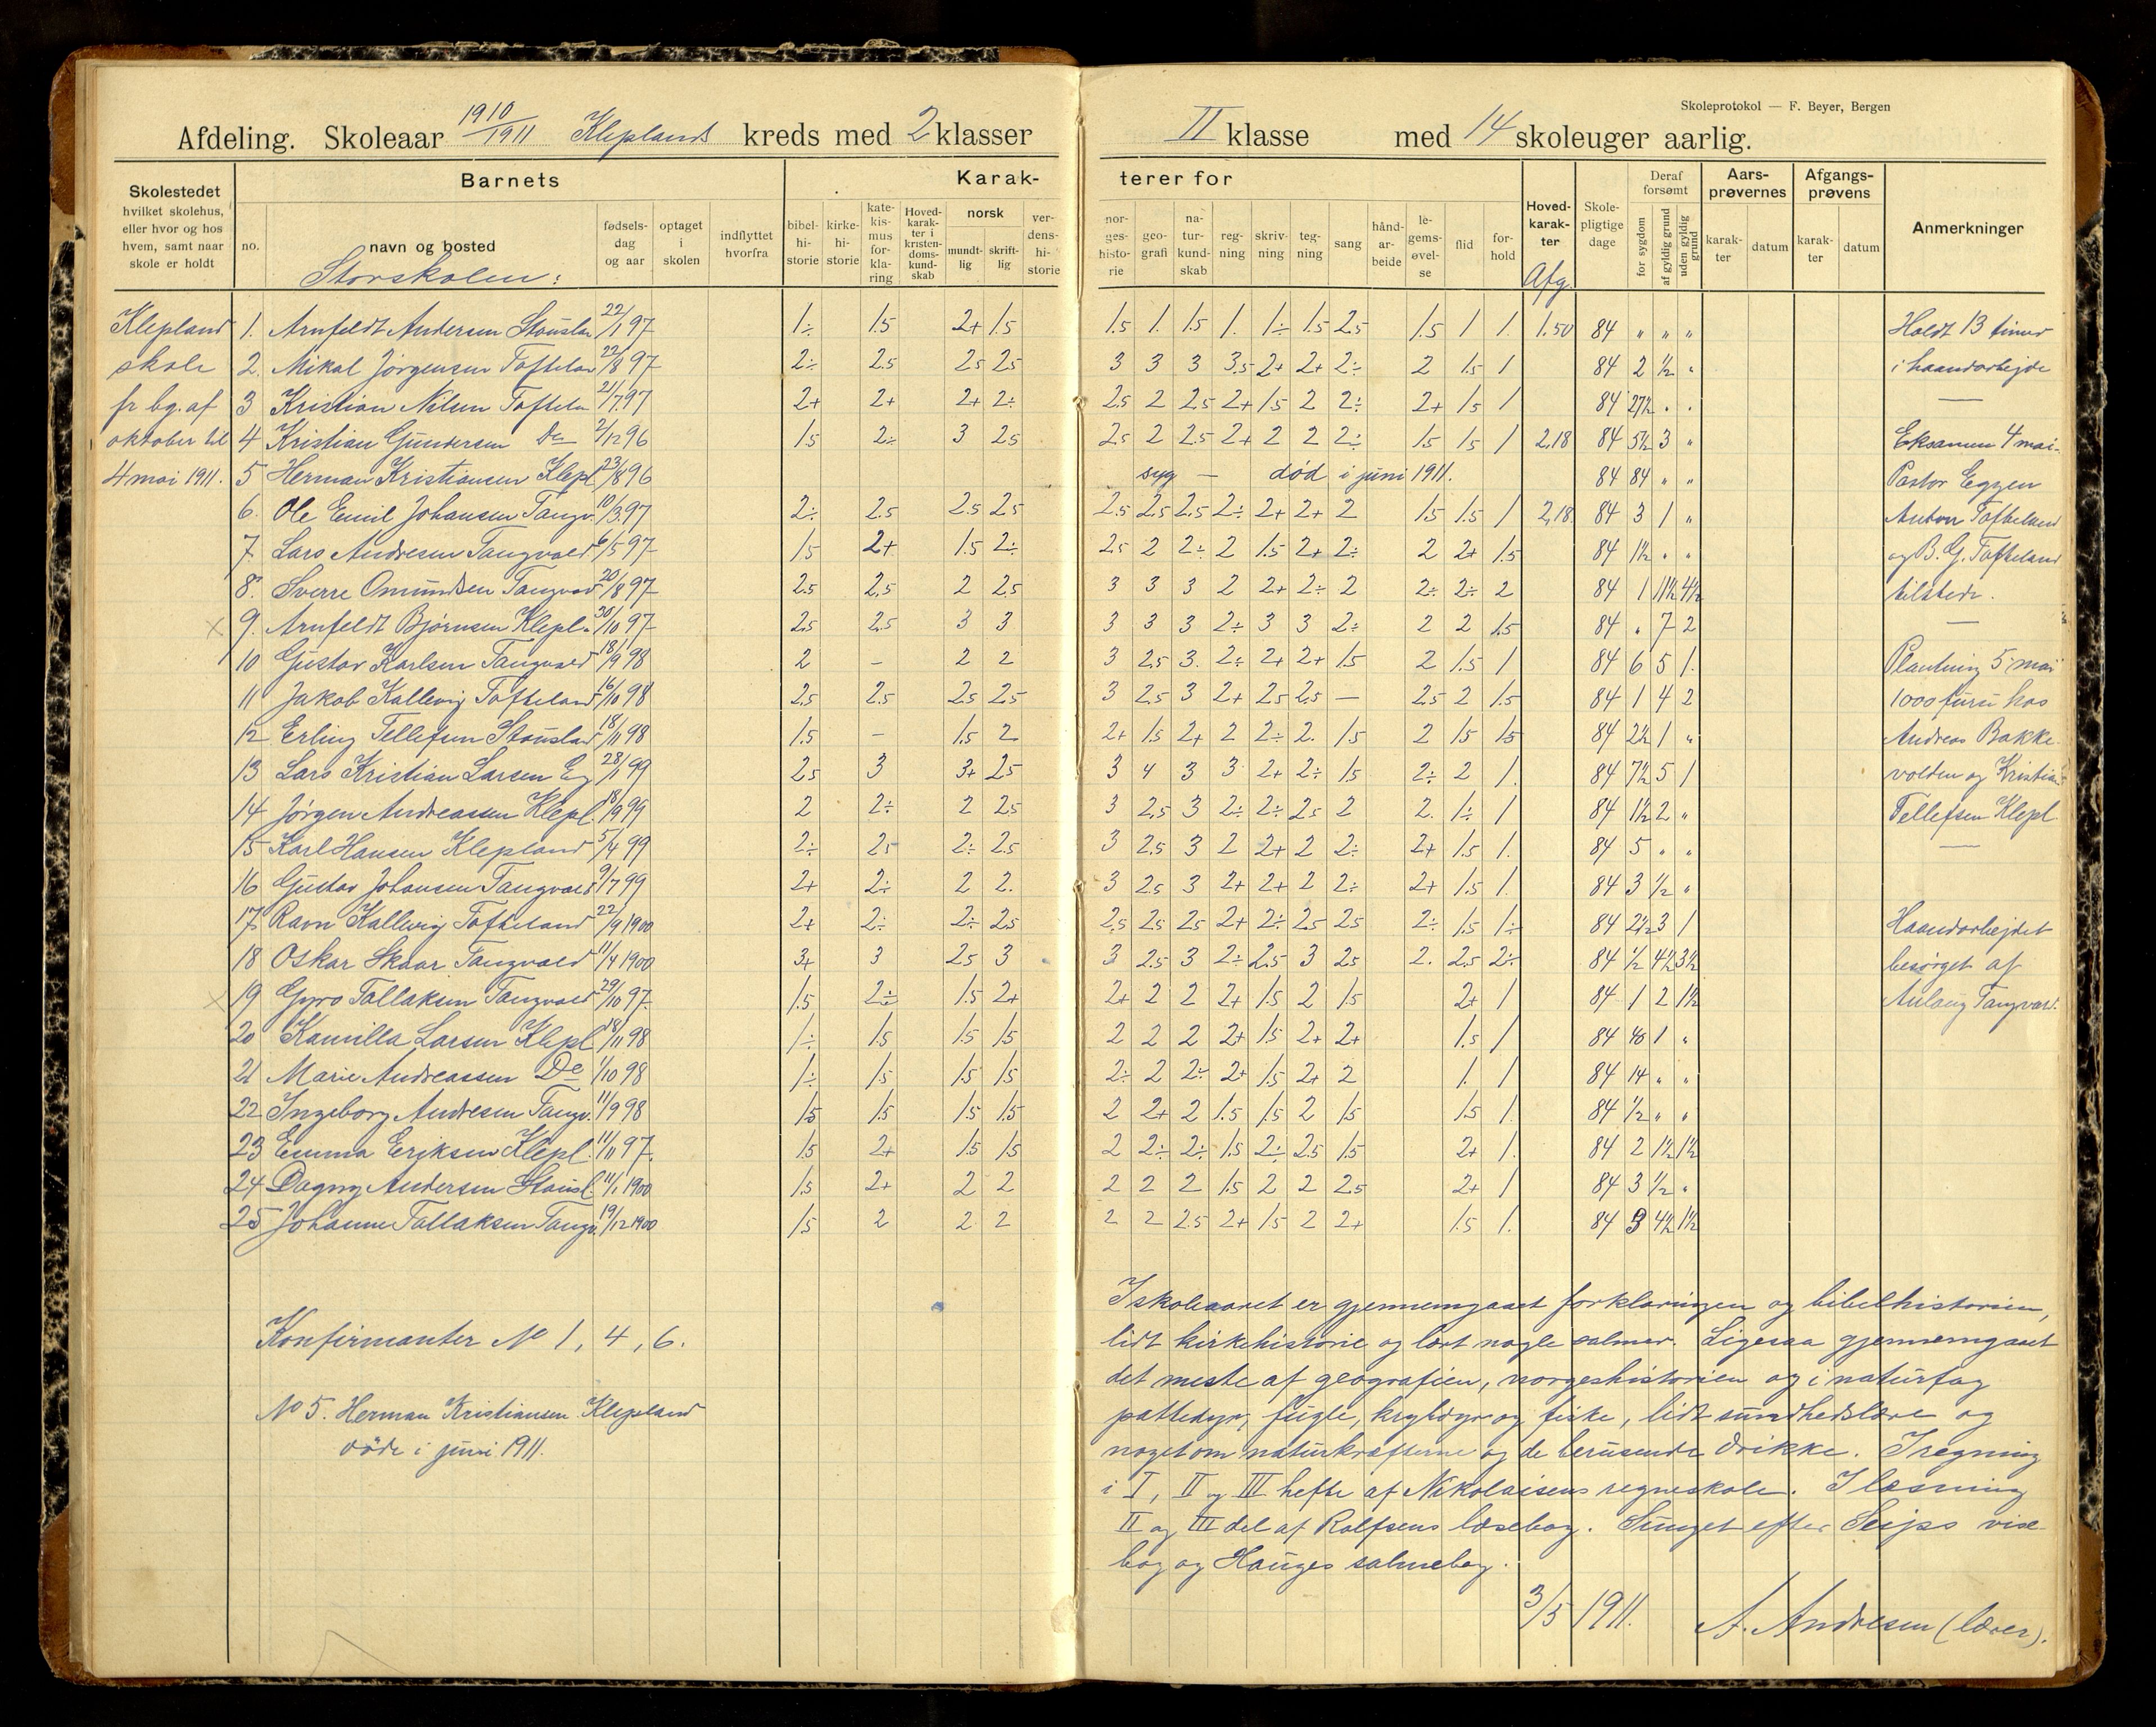 Skoleprotokol — F. Beyer, Bergen
Afdeling. Skoleaar 1910/1911 Kleplands kreds med 2 klasser II klasse med 14 skoleuger aarlig.
Skolestedet hvilket skolehus, eller hvor og hos hvem, samt naar skole er holdt
Barnets
no. navn og bosted fødselsdag og aar optaget i skolen indflyttet hvorfra
Karakterer for
bibelhistorie kirkehistorie katekismus forklaring Hovedkarakter i kristendomskundskab norsk mundtlig skriftlig verdenshistorie
norgeshistorie geografi naturkundskab regning skrivning tegning sang håndarbeide legemsøvelse flid forhold
Hovedkarakter Skolepligtige dage Deraf forsømt for sygdom af gyldig grund uden gyldig grund
Aarsprøvernes karakter datum Afgangsprøvens karakter datum Anmerkninger
Storskolen:
Afg.
Klepland 1. Arnfeldt Andersen 22/1 97 1÷ 1.5 2+ 1.5 1.5 1. 1.5 1. 1÷ 1.5 2.5 1.5 1 1. 1.50 84 " " " Holdt 13 timer
skole 2. Mikal Jörgensen 22/8 97 2÷ 2.5 2.5 2.5 3 3 3 3.5 2+ 2+ 2÷ 2 1.5 1 84 2 1/2 " i haandarbejde
fr bg. af 3 Kristian Nilsen 21/7 97 2+ 2+ 2+ 2÷ 2.5 2 2.5 2+ 1.5 2 2÷ 2+ 1.5 1 84 27½ " "
oktober til 4 Kristian Gundersen Do 2/12 96 1.5 2÷ 3 2.5 2.5 2 2.5 2+ 2 2 2÷ 1.5 1.5 1 2,18 84 5½ 3 " Eksamen 4 mai.
4 mai 1911. 5 Herman Kristiansen Klepl. 23/8 96 syg — død i juni 1911. 84 84 " " Pastor Eggen
6. Ole Emil Johansen Tangv. 10/3 97 2÷ 2.5 2.5 2.5 2.5 2.5 2.5 2÷ 2+ 2+ 2 1.5 1.5 1 2,18 84 3 1 " Anton Tofteland
7. Lars Andresen Tangvald 6/5 97 1.5 2+ 1.5 2÷ 2.5 2 2÷ 2 1.5 2+ 2÷ 2 2+ 1.5 84 1½ " " og B. G. Tofteland
8. Sverre Omundsen 20/8 97 2.5 2.5 2 2.5 3 3 3 2 2+ 2÷ 2 2÷ 2÷ 2 84 1 11½ 4½ tilstede.
9. Arnfeldt Björnsen Klepl. 30/10 97 2.5 2.5 3 3 3 3 3 2÷ 3 3 2÷ 2 2 1.5 84 " 7 2
10 Gustav Karlsen Tangvald 18/9 98 2 – 2 2 3 2.5 3. 2÷ 2+ 2+ 1.5 2 1.5 1 84 6 5 1. Plantning 5 mai
11 Jakob Kallevig Tofteland 16/10 98 2.5 2.5 2.5 2.5 3 2.5 3 2+ 2.5 2.5 — 2.5 2 1.5 84 1 4 2 1000 furu hos
12 Erling Tellefsen 18/11 98 1.5 – 1.5 2 2+ 1.5 2+ 2 2÷ 2. 1.5 2 1.5 1.5 84 2½ 1 " Andreas Bakke-
13 Lars Kristian Larsen 28/1 99 2.5 3 3+ 2.5 3 4 3 3 2+ 2÷ 1.5 2÷ 2 1. 84 7½ 5 1 volden og Kristian
14 Jørgen Andreassen Klepl. 18/9 99 2 2÷ 2 2.5 3 2.5 3 2÷ 2÷ 2.5 2 2. 1÷ 1 84 1½ 2 " Tellefsen Klepl.
15 Karl Hansen Klepland 5/4 99 2÷ 2.5 2÷ 2.5 3 2.5 3 2 2+ 2 2÷ 2+ 1.5 1. 84 5 " "
16 Gustav Johansen Tangvald 9/7 99 2+ 2÷ 2 2. 3 2.5 3 2+ 2+ 2 2÷ 2+ 1.5 1. 84 3 1/2 "
17 Ravn Kallevig Tofteland 22/9 1900 2+ 2÷ 2÷ 2.5 2.5 2.5 2.5 2+ 2÷ 2.5 2.5 2÷ 1.5 1÷ 84 2½ 3 1 Haandarbejdet
18 Oskar Skaar Tangvald 11/4 1900 3+ 3 2.5 3 3 2.5 3 2÷ 2.5 3 2.5 2. 2.5 2÷ 84 ½ 4½ 3½ besörget af
19 Gyro Tallaksen Tangvald 29/10 97 1.5 2÷ 1.5 2+ 2+ 2 2 2+ 1.5 2 1.5 2+ 1 84 1 2 1½ Anlaug Tangvald.
20 Kamilla Larsen Klepl. 18/11 98 1÷ 1.5 1.5 1.5 2 2 2 2+ 1.5 2+ 2+ 1.5 1 84 40 1 "
21 Marie Andreassen Do 1/10 98 1÷ 1.5 1.5 1.5 2÷ 2 2÷ 2+ 1.5 2+ 2 1. 1 84 14 " "
22 Ingeborg Andresen Tangv. 11/9 98 1.5 1.5 1.5 1.5 2 2+ 2 1.5 1.5 2 1.5 1.5 1. 84 ½ " "
23 Emma Eriksen Klepl. 11/11 97. 1.5 2+ 1.5 1.5 2 2÷ 2÷ 1.5 2÷ 2.5 1.5 2+ 1. 84 2 1½ 1½
24 Dagny Andersen 11/1 1900 1.5 2+ 2 2 2 2 2 1.5 2 2 2.5 2+ 1 84 3 ½ "
25 Johanne Tallaksen Tangv. 19/12 1900 1.5 2 2 2 2 2 2.5 2+ 1.5 2 2+ 1.5 1. 84 3 4½ 1½
Konfirmanter No 1, 4, 6.
No 5. Herman Kristiansen Klepland
døde i juni 1911.
I skoleaaret er gjennemgaaet forklaringen og bibelhistorien,
lidt kirkehistorie og lært nogle salmer. Ligesaa gjennemgaaet
det meste af geografien, norgeshistorien og i naturfag
pattedyr, fugle, krybdyr og fiske, lidt sundhedslære og
noget om naturkræfterne og de berusende drikke. I regning
i I, II og III hefte af Nikolaisens regneskole. I læsning
II og III del af Rolfsens læsebog. Sunget efter vise-
bog og Hauges salmebog.
3/5 1911. A. Andresen (lærer).